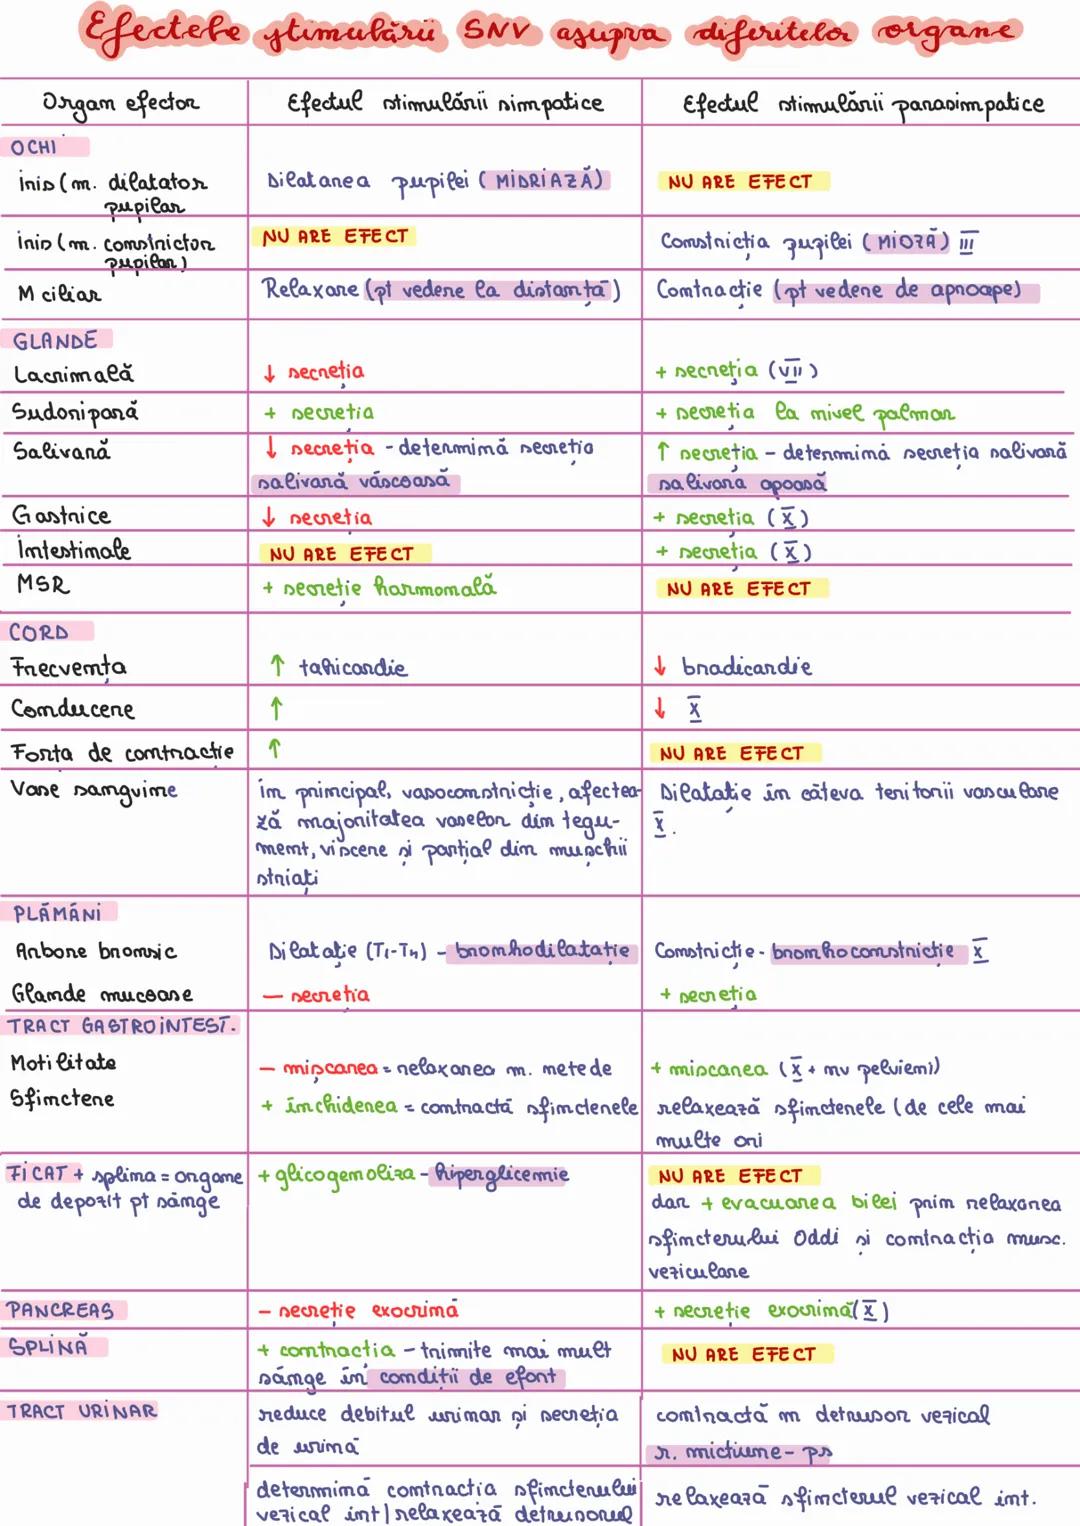 Efectele stimulării SNV asupra diferitelor organe
Organ efector
Efectul stimulării simpatice
Efectul stimulării parasimpatice
OCHI
iris (m. dilatator
pupilar
Dilatarea pupilei (MIDRIAZĂ)
NU ARE EFECT
iris (m. constrictor
pupilar)
NU ARE EFECT
Constricția pupilei (MIOZĂ) III
M ciliar
Relaxare (pt vedere la distanță)
Contracție (pt vedere de aproape)
GLANDE
Lacrimală
↓ secreția
+ secreția (VII)
Sudoripară
+ secreția
+ secreția la nivel palmar
Salivară
↓ secreția - determină secreția
salivară vâscoasă
↑ secreția - determină secreția salivară
salivară apoasă
Gastrice
↓ secreția
+ secreția (X)
Intestinale
NU ARE EFECT
+ secreția (X)
MSR
+ secreție hormonală
NU ARE EFECT
CORD
Frecvența
↑ tahicardie
↓ bradicardie
Conducere
↑
↓ X
Forța de contracție
↑
NU ARE EFECT
Vase sanguine
în principal, vasoconstricție, afectea-
ză majoritatea vaselor din tegu-
ment, viscere și parțial din mușchii
striați
Dilatație în câteva teritorii vasculare
X.
PLĂMÂNI
Arbore bronșic
Dilatație (T1-T4) - bronhodilatație
Constricție - bronhoconstricție X
Glande mucoase
- secreția
+ secreția
TRACT GASTROINTEST.
Motilitate
- mișcarea = relaxarea m. netede
+ mișcarea (X + nv pelvieni)
Sfinctere
+ închiderea = contractă sfincterele
relaxează sfincterele (de cele mai
multe ori
FICAT + splina = organe
de depozit pt sânge
+ glicogenoliza - hiperglicemie
NU ARE EFECT
dar + evacuarea bilei prin relaxarea
sfincterului Oddi și contracția musc.
veziculare
PANCREAS
- secreție exocrină
+ secreție exocrină (X)
SPLINĂ
+ contracția - trimite mai mult
sânge în condiții de efort
NU ARE EFECT
TRACT URINAR
reduce debitul urinar și secreția
de urină
contractă m detrusor vezical
r. micțiune - ps
determină contracția sfincterului
vezical int | relaxează detrusorul
relaxează sfincterul vezical int.